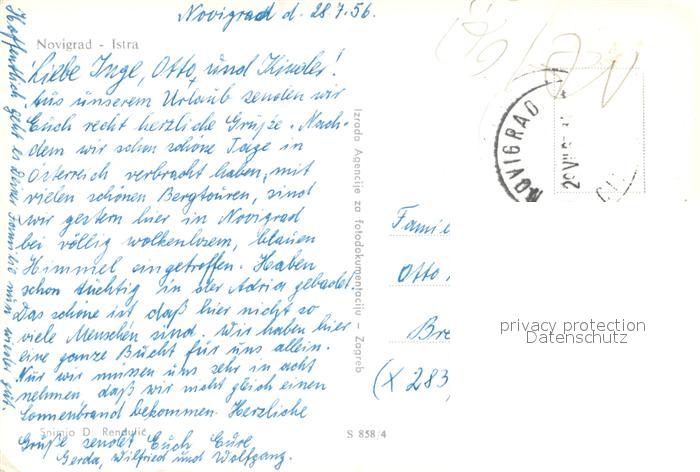 Novigrad d. 28.7.56.
Novigrad - Istra
Liebe Inge, Otto, und Kinder!
Aus unserem Urlaub senden wir
Euch recht herzliche Grüße. Nach-
dem wir schon schöne Tage in
Österreich verbracht haben, mit
vielen schönen Bergtouren, sind
wir gestern hier in Novigrad
bei völlig wolkenlosem, blauen
Himmel eingetroffen. Haben
schon tüchtig in der Adria gebadet.
Das schöne ist, daß hier nicht so
viele Menschen sind. Wir haben hier
eine ganze Bucht für uns allein.
Nur wir müssen uns sehr in acht
nehmen, daß wir nicht gleich einen
Sonnenbrand bekommen. Herzliche
Grüße sendet Euch Eure
Gerda, Wilfried und Wolfgang.
Hoffentlich geht es Deiner Familie wieder gut.
Snimio D. Rendulić
S 858/4
Izrada Agencije za fotodokumentaciju - Zagreb
NOVIGRAD
Famil
Otto
Bre
(X 283
privacy protection
Datenschutz